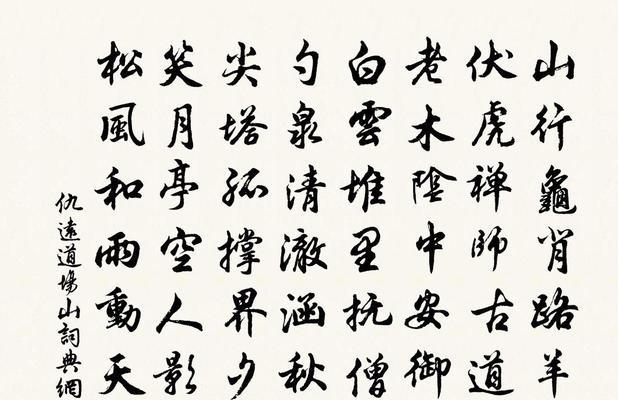 山行龜背路羊
伏虎禅師古道
老木陰中安御
白雲堆里僧
勺泉清澈涵秋
尖塔孤撑界夕
笑月亭空人影
松風和雨動天
仇遠道場山詞典網